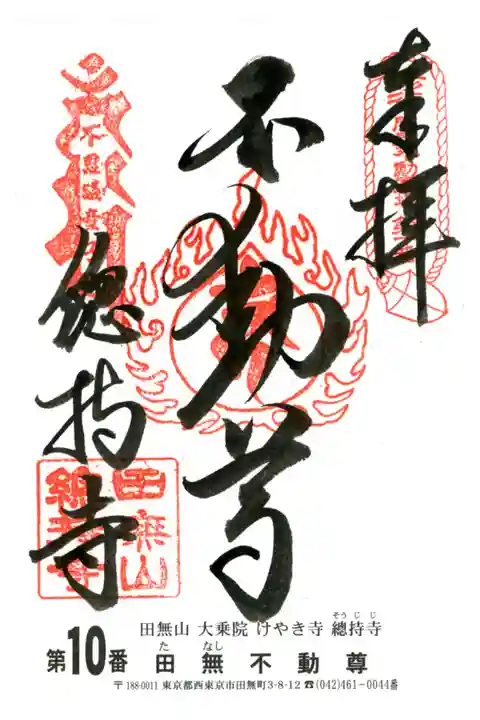 奉拝
不動尊
總持寺
田無山
總持寺
田無山 大乗院 けやき寺 總持寺
そうじじ
第10番 田無不動尊
たなし
〒188-0011 東京都西東京市田無町3-8-12 ☎(042)461-0044番